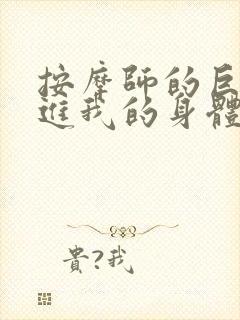 按摩師的巨
進我的身體
貴?我